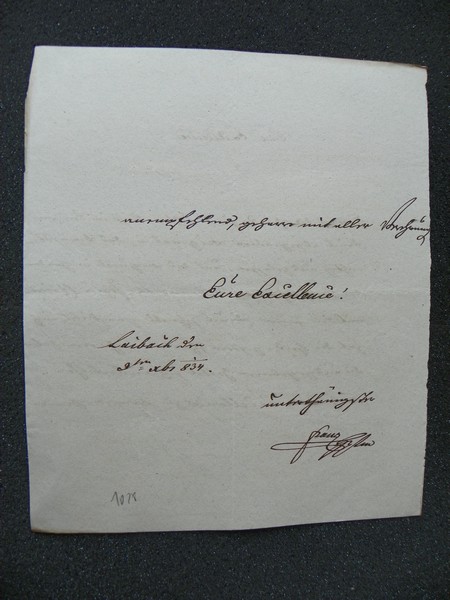 anempfehlend, geharre mit aller Verehrung
Eüre Excellence!
Laibach den
9ten xbr 834.
unterthänigster
Franz
1075